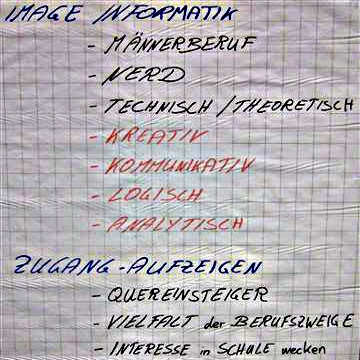 IMAGE INFORMATIK
- MÄNNERBERUF
- NERD
- TECHNISCH / THEORETISCH
- KREATIV
- KOMMUNIKATIV
- LOGISCH
- ANALYTISCH
ZUGANG - AUFZEIGEN
- QUEREINSTEIGER
- VIELFALT der BERUFSZWEIGE
- INTERESSE in SCHULE wecken